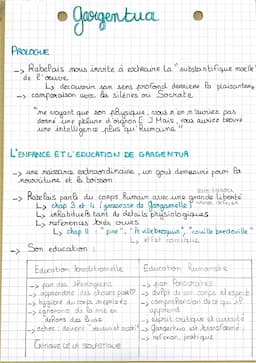 Gargentua
PROLOGUE
-> Rabelais nous invite à extraire la "substantifique moelle"
de l'œuvre
↳ découvrir son sens profond derrière la plaisanterie
-> comparaison avec les silènes ou Socrate
"ne voyant que son physique, vous n'en n'auriez pas
donné une pelure d'oignon [...] Mais, vous auriez trouvé
une intelligence plus qu'humaine"
L'ENFANCE ET L'EDUCATION DE GARGENTUA
-> une naissance extraordinaire, un goût démesuré pour la
nourriture et la boisson
-> Rabelais parle du corps humain avec une grande liberté
↳ chap 3 et 4 (grossesse de Gargamelle)
↳ inhabituels tant de détails physiologiques
↳ références très crues
↳ chap 11 :
↳ effet comique
-> Son éducation :
Education traditionnelle
Education humaniste
-> par des théologiens
-> par Ponocrates
-> apprendre des choses par ♡
-> du corps et esprit
-> hygiène du corps
-> compréhension de ce qu'il
apprend
-> ignorance de la vie en
dehors des livres
-> esprit critique et curiosité
-> échec : devient
-> Gargantua est transformé
-> réflexion, pratique